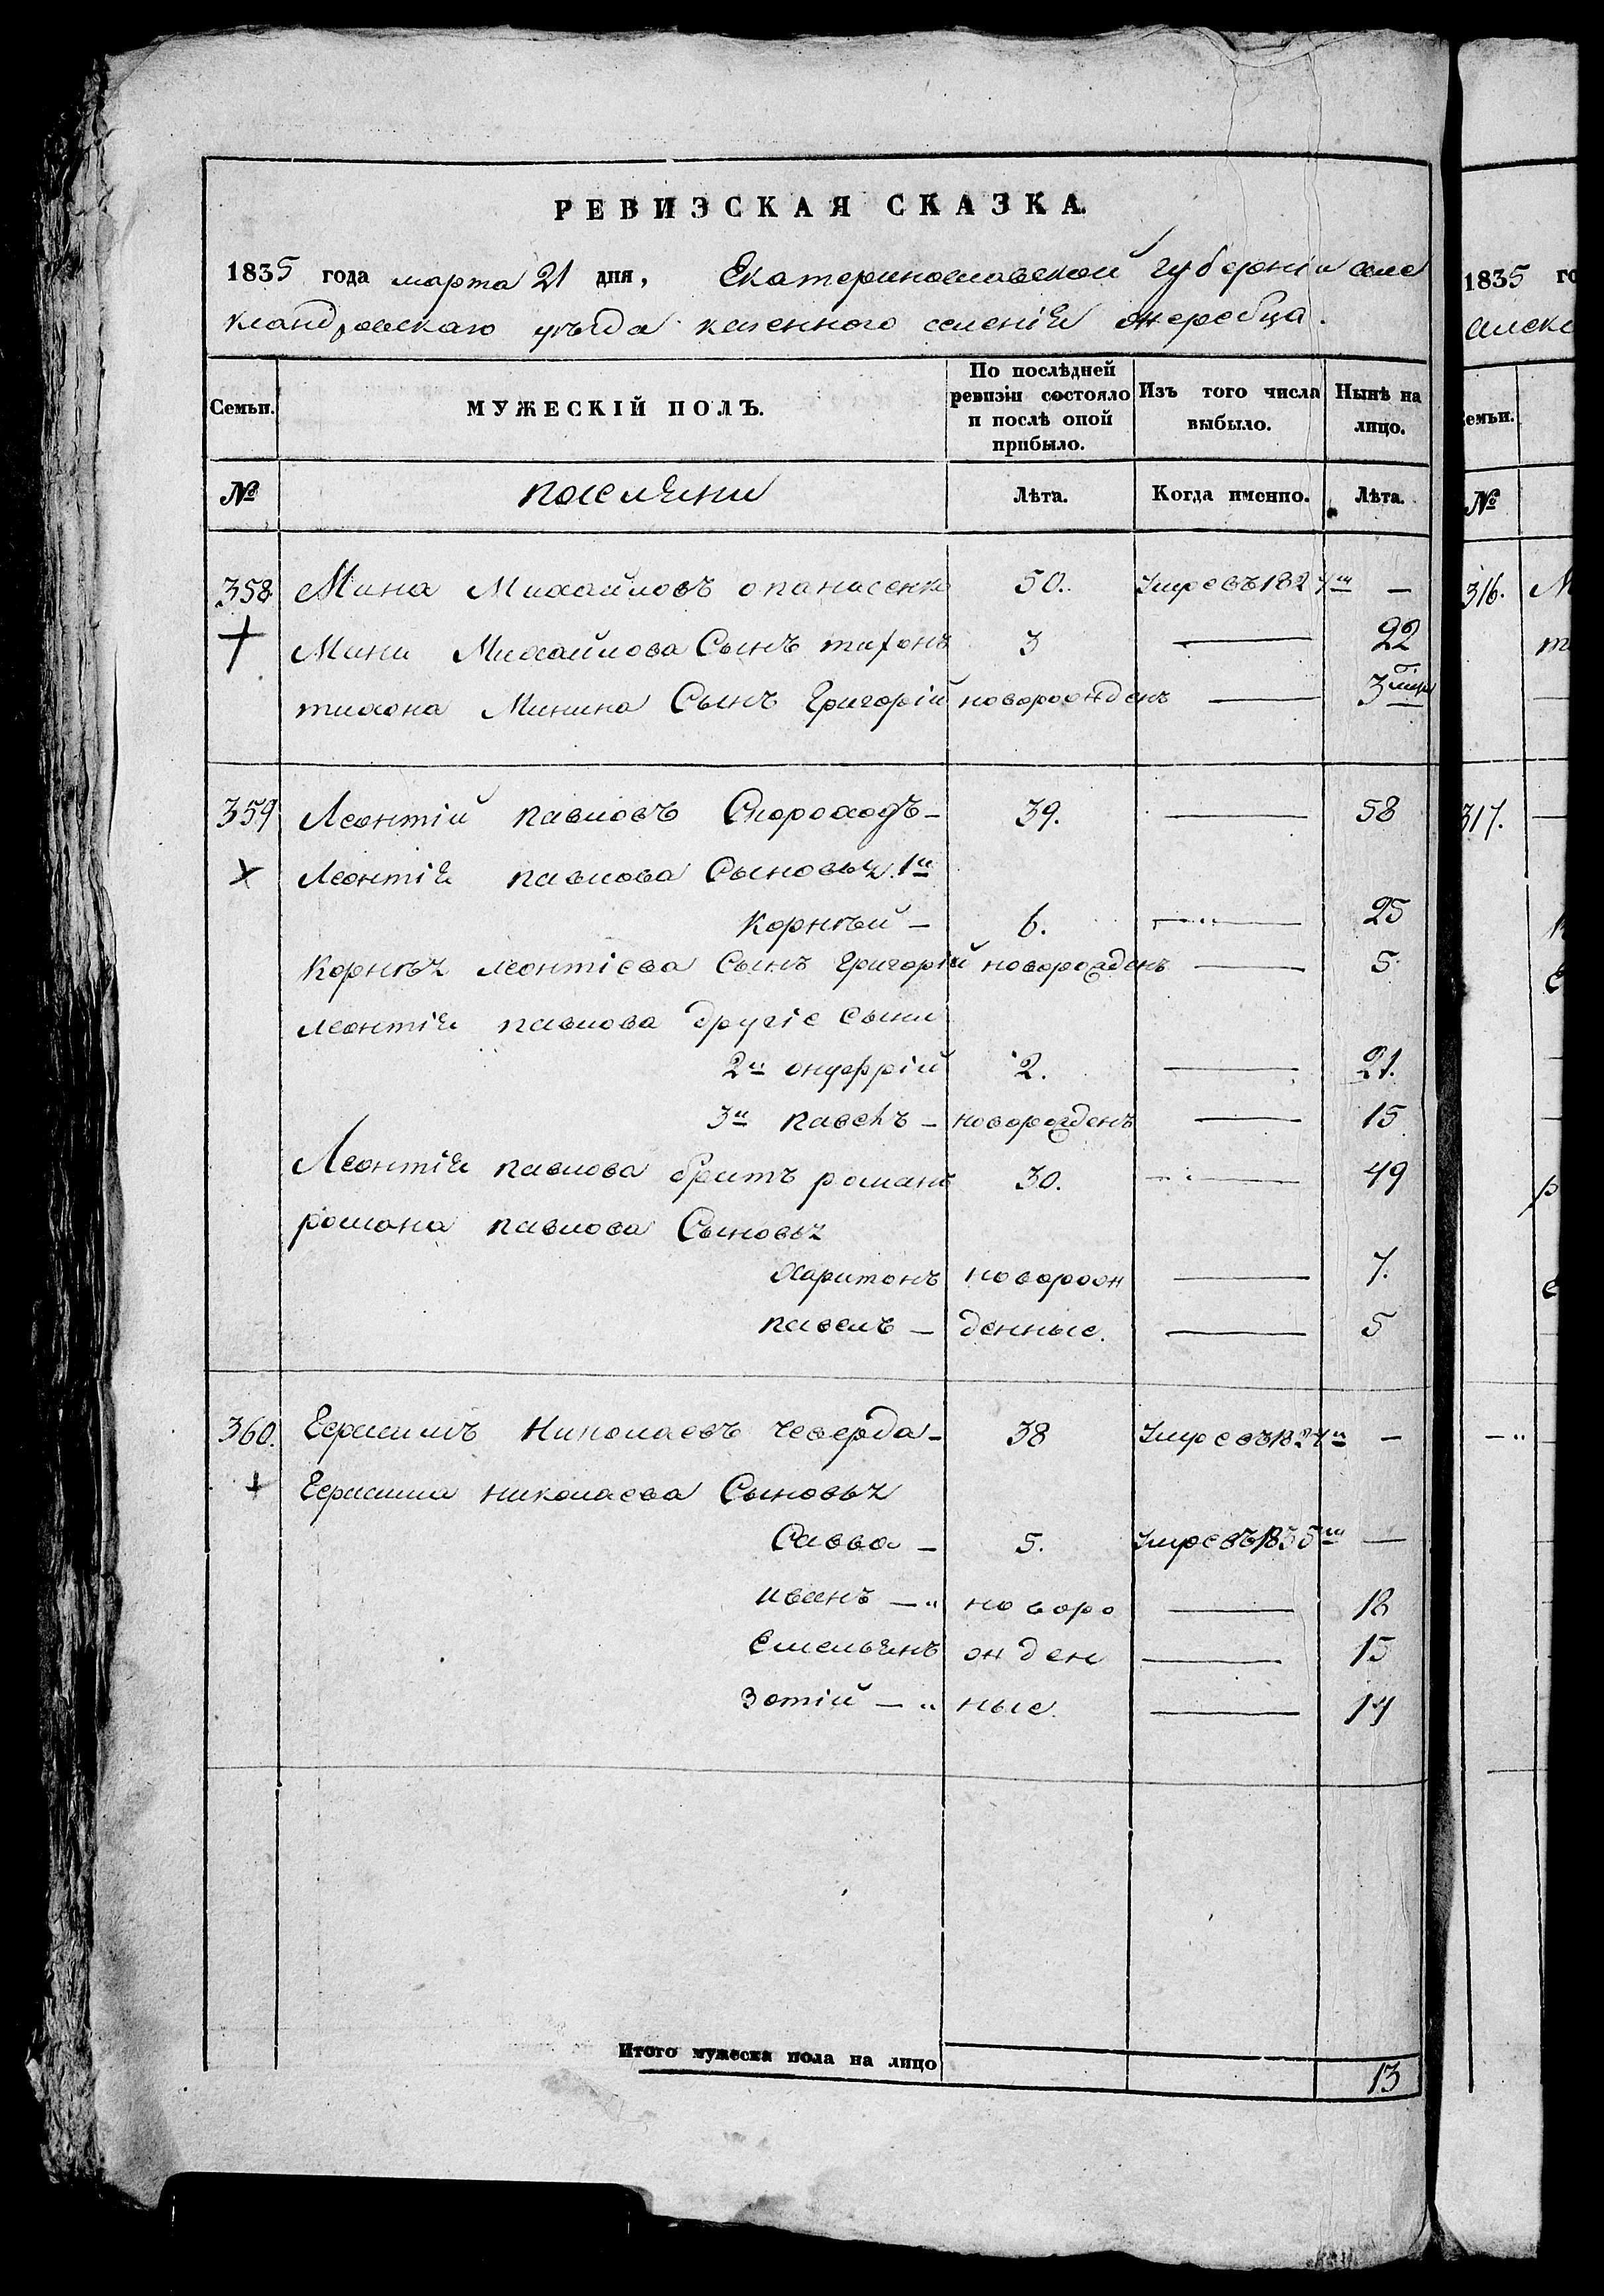 РЕВИЗСКАЯ СКАЗКА.
1835 года марта 21 дня, Екатеринославской губернїи алек
кландровскаго уѣзда казенного селенїя жеребца.
Семьи. МУЖЕСКІЙ ПОЛЪ. По послѣдней ревизіи состояло и послѣ оной прибыло. Изъ того числа выбыло. Нынѣ на лицо.
№ поселяни Лѣта. Когда именно. Лѣта.
358 Мина Михайловъ опанасенко 50. Умре въ 1827м —
Мини Михайлова Сынъ тихонъ 3 — 22
тихона Минина Сынъ Григорій новорожденъ — 3 мѣц
359 Леонтій павловъ Скороходъ — 39. — 58
Леонтія павлова Сыновья 1й
Корнѣй — 6. — 25
Корнѣя леонтіева Сынъ Григорій новорожденъ — 5
леонтія павлова другіе сыни
2й онуфрій 2. — 21.
3й павелъ — новорожденъ — 15
Леонтія павлова братъ романъ 30. — 49
романа павлова Сыновья
Харитонъ новорож — 7.
павелъ — денные. — 5
360. Герасимъ Николаевъ Чеверда — 38 Умре въ 1827м —
Герасима николаева Сыновья
Савва — 5. Умре въ 1835м —
иванъ — " новоро — 18
Емельянъ жден — 15
Зотій — " ные. — 14
Итого мужеска пола на лицо 13
1835 го
алекс
Семьи.
№
316. М
317.